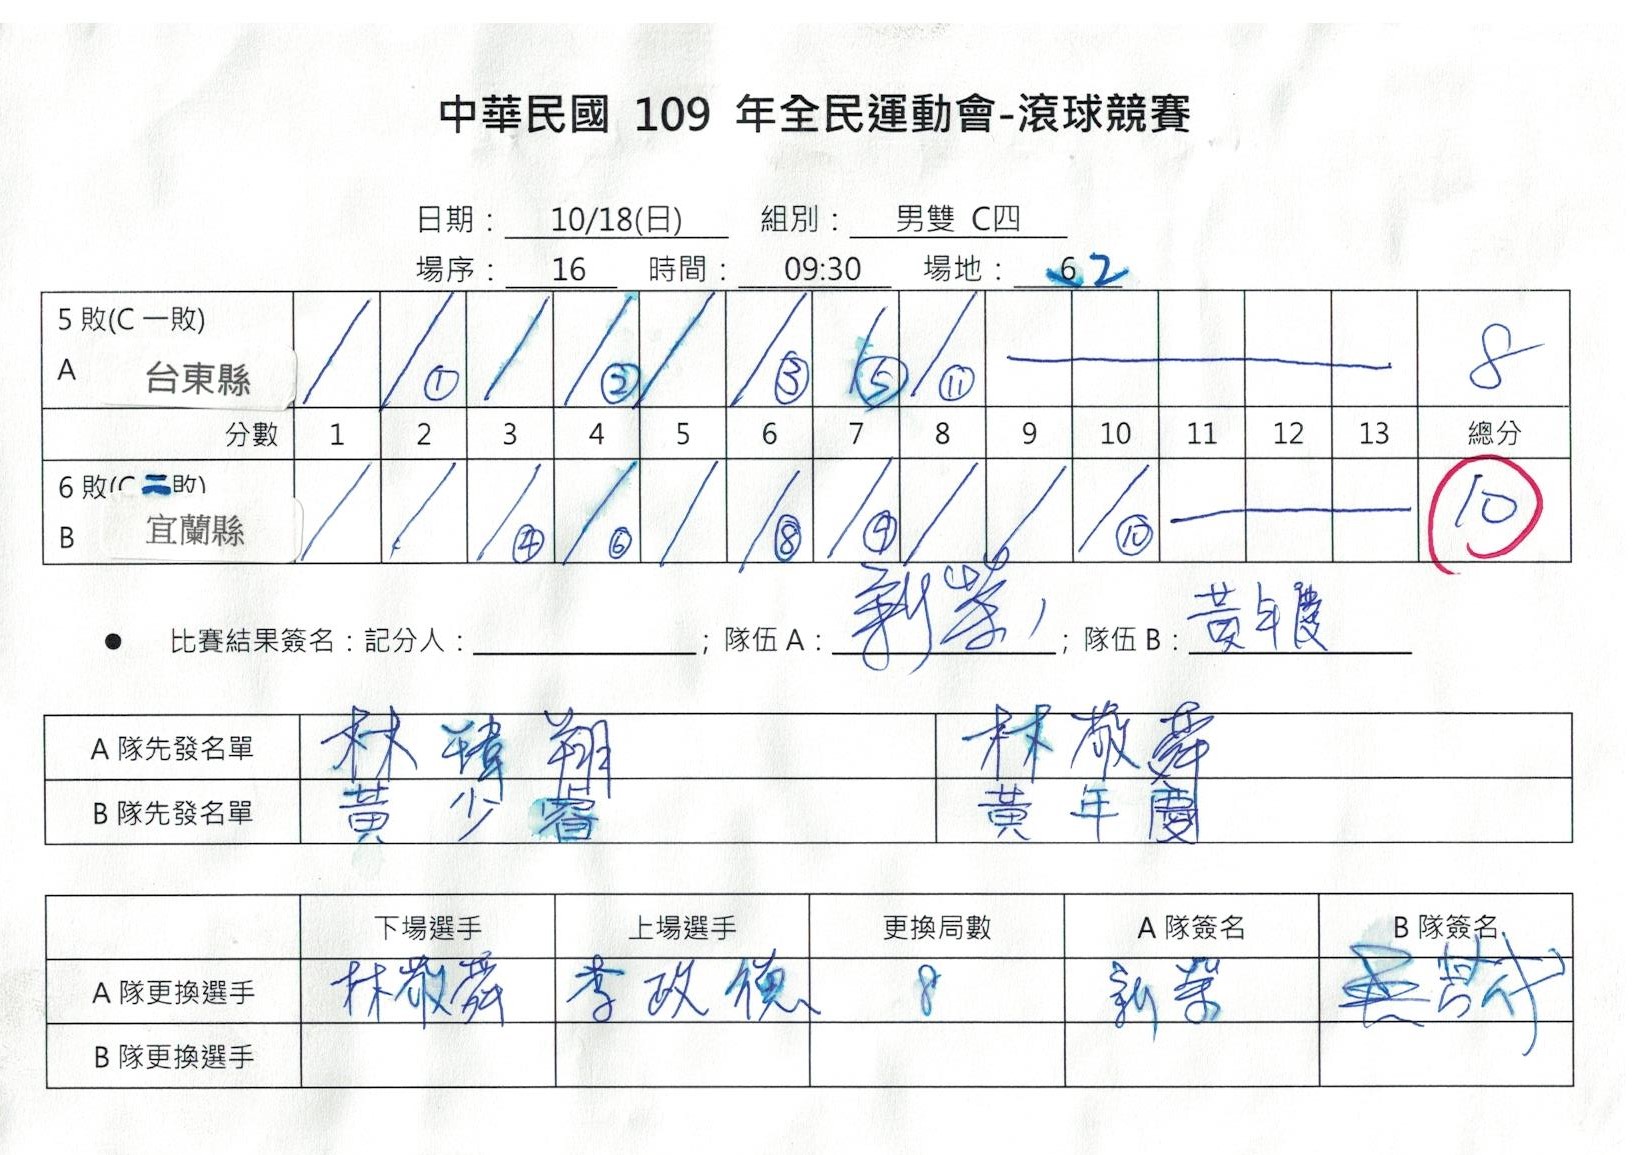 中華民國 109 年全民運動會-滾球競賽
日期： 10/18(日) 組別： 男雙 C四
場序： 16 時間： 09:30 場地： 6 2
5 敗(C 一敗)
A 台東縣 / / ① / / ② / / ③ / ⑤ / ⑪ 8
分數 1 2 3 4 5 6 7 8 9 10 11 12 13 總分
6 敗(C 二敗)
B 宜蘭縣 / / / ④ / ⑥ / / ⑧ / ⑨ / / / ⑩ 10
● 比賽結果簽名：記分人： ；隊伍 A： ；隊伍 B： 黃年慶
A 隊先發名單 林暐翔 林敬舜
B 隊先發名單 黃少睿 黃年慶
下場選手 上場選手 更換局數 A 隊簽名 B 隊簽名
A 隊更換選手 林敬舜 李政德 8
B 隊更換選手